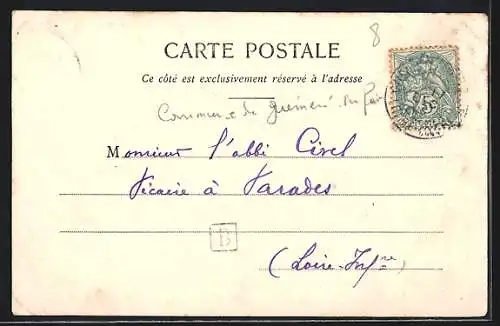 8
CARTE POSTALE
Ce côté est exclusivement réservé à l'adresse
Commune de Guémené
Monsieur l'abbé Civel
Vicaire à Varades
B
(Loire-Infre)
5